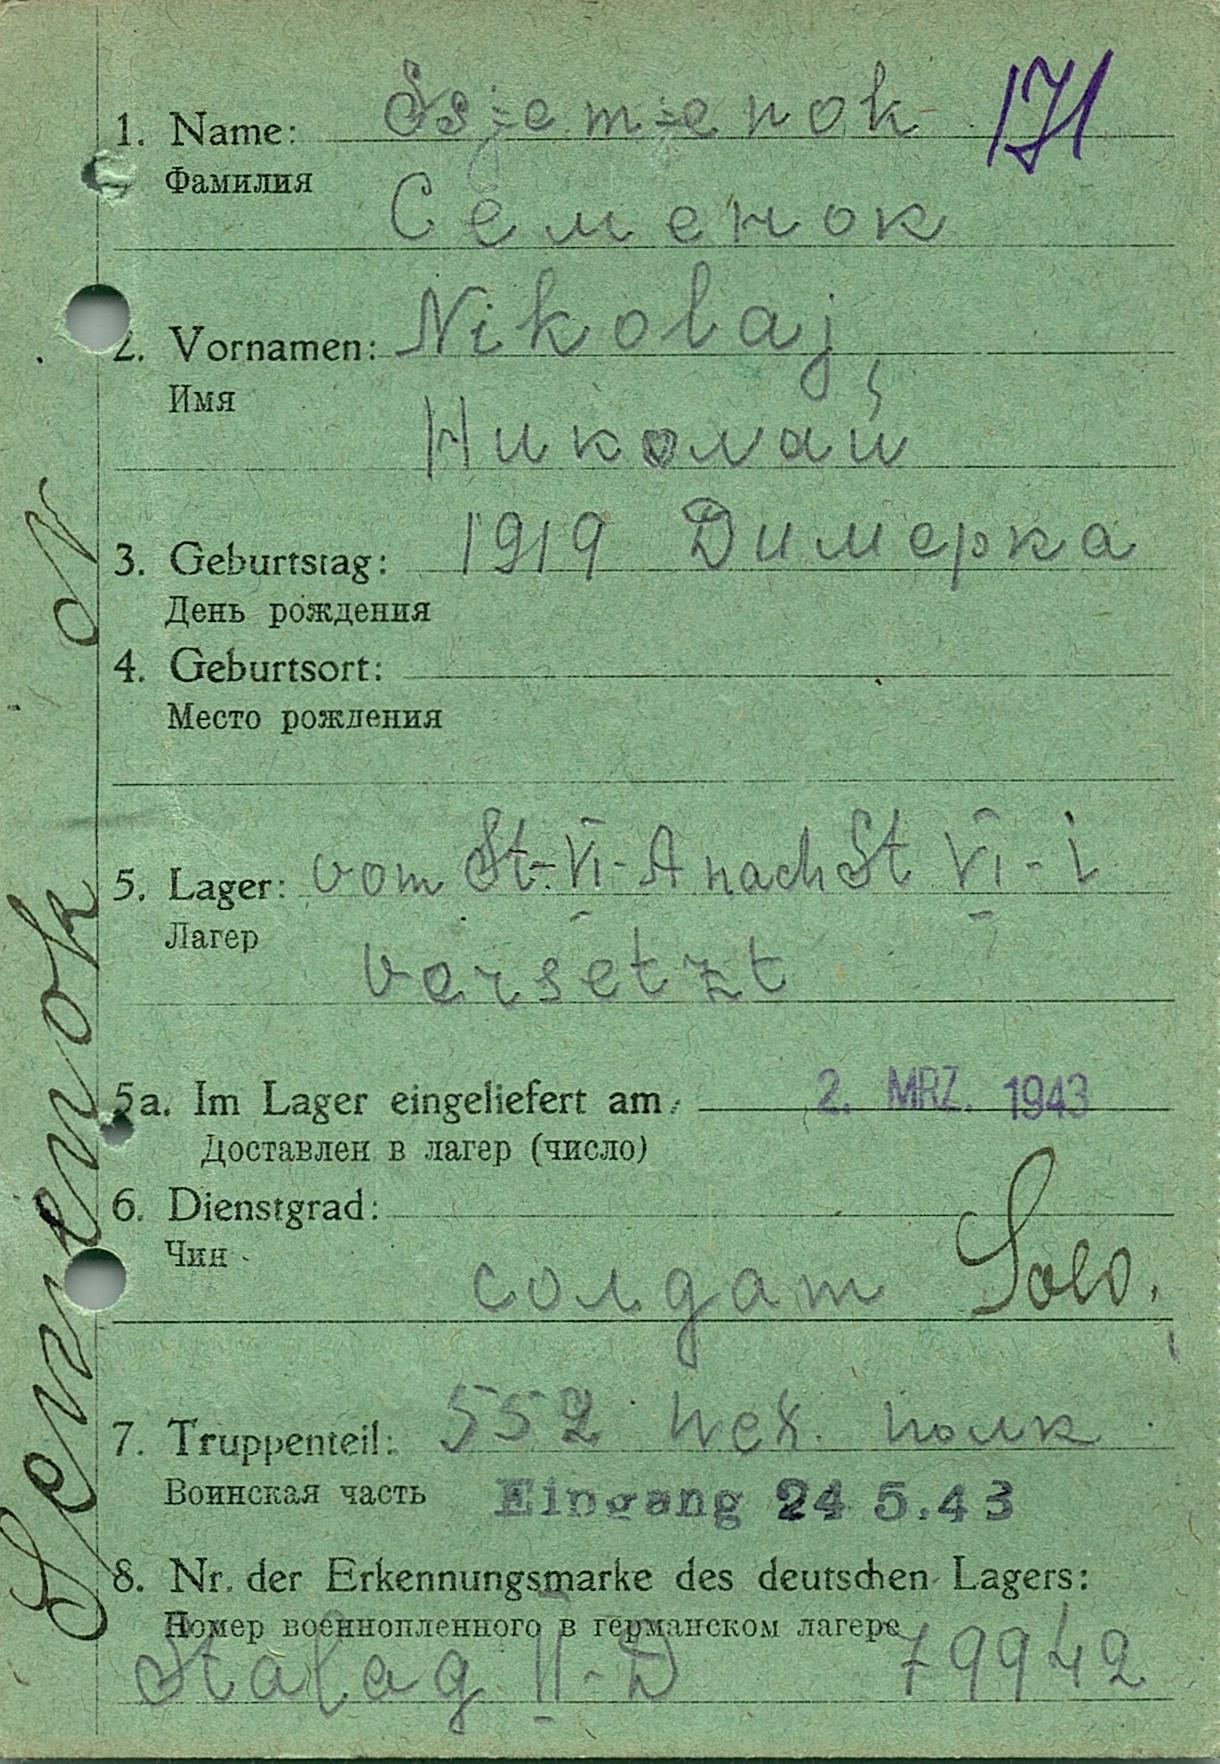 171
1. Name: Ssjemjenok
Фамилия
Семенок
2. Vornamen: Nikolaj
Имя
Николай
3. Geburtstag: 1919 Димерка
День рождения
4. Geburtsort:
Место рождения
5. Lager: vom St-VI-A nach St VI-i
Лагер
versetzt
5a. Im Lager eingeliefert am: 2. MRZ. 1943
Доставлен в лагер (число)
6. Dienstgrad:
Чин
солдат Sold.
7. Truppenteil: 552 пех. полк
Воинская часть Eingang 24 5.43
8. Nr. der Erkennungsmarke des deutschen Lagers:
Номер военнопленного в германском лагере
Stalag II-D 79942
Semenok N